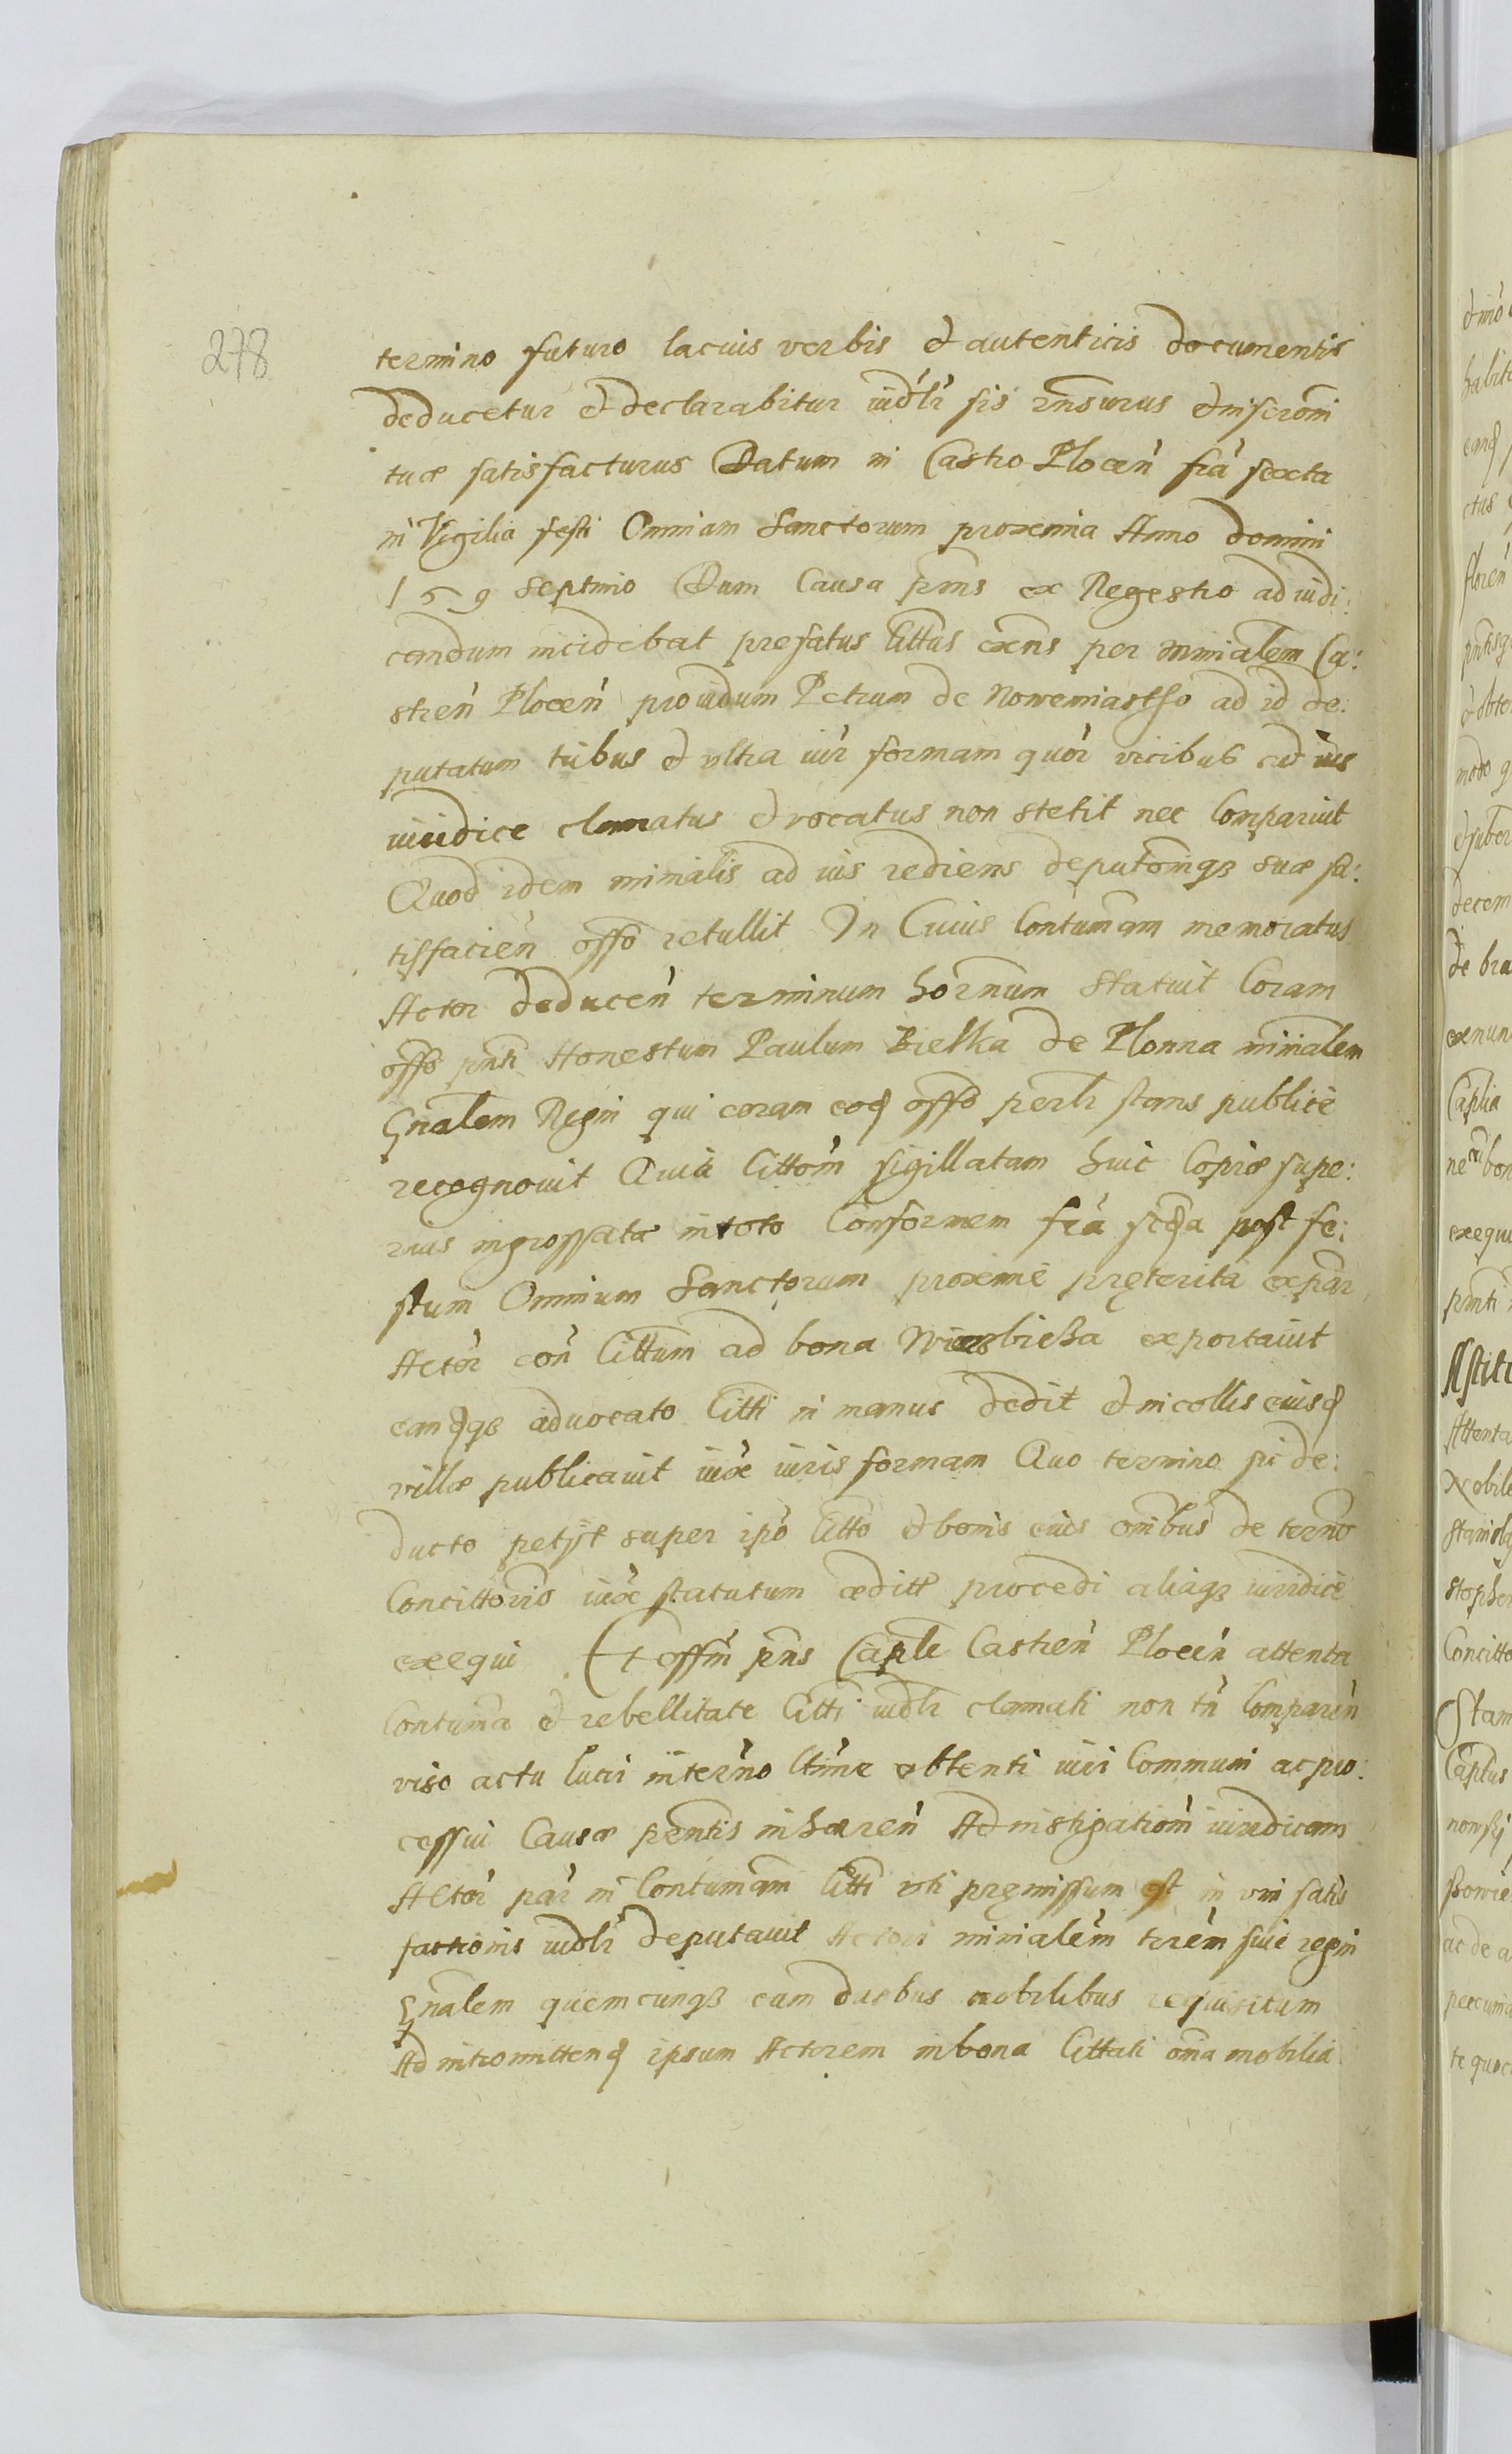 278
termino futuro lacius verbis et autenticis documentis
deducetur et declarabitur iudłr sis rnsurus et iniscrōni
tuæ satisfacturus Datum in Castro Plocen̄ fra sexta
in Vigilia festi Omniam Sanctorum proxima Anno domini
159 septimo Dum Causa pn̄s ex Regestro ad iudi:
candum incidebat prefatus Cittūs exn̄s per mnialem Ca:
stren̄ Plocen̄ prouidum Petrum de Nowemiastho ad id de:
putatum tribus et vltra iur̄ formam quor̄ vicibus ad ius
iuridice clamatus et vocatus non stetit nec Comparuit
Quod idem minialis ad ius rediens deputōniqz suæ sa:
tisfacien̄ offō retullit In Cuius Contumām memoratus
Actor deducen̄ terminum hornum statuit Coram
offō pn̄ti Honestum Paulum Bielka de Plonna minialem
Gnalem Regni qui coram eod offō perlr̄ stans publice
recognouit Quia Cittōm sigillatam huic Copiæ supe:
rius ingrossatæ in toto Conformem fra scda post fe:
stum Omnium Sanctorum proxime præterita ex par
Actor̄ con̄ Cittūm ad bona Wierzbicza exportauit
eandqz aduocato Citti in manus dedit et in collis eiusd
villæ publicauit iux̄ iuris formam Quo termino sic de:
ducto petÿt super ipō Cittō et bonis eius om̄ibus de tern̄o
Concittōrio iux̄ statutum æditt procedi aliaqz iuridice
exequi Et offm̄ pn̄s Capłe Castren̄ Plocen̄ attenta
Contum̄a et rebellitate Citti iudłr clamati non tn̄ Comparen̄
viso actu lucri in tern̄o ltime obtenti iuri Communi ac pro:
cessui Causæ pn̄tis inhæren̄ Ad instigation̄ iuridicam
Actor̄ par̄ in Contumām Citti vti præmissum est in vim satis
factionis iudłr deputauit Actori minialem trem̄ siue regni
Gnalem quemcunqz cum duobus nobilibus requisitum
Ad intromittend ipsum Actorem in bona Cittati om̄ia mobilia